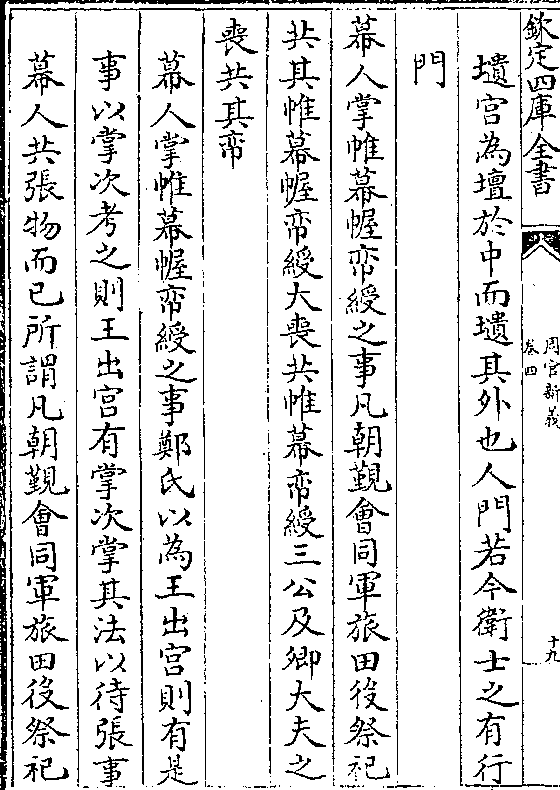 欽定四庫全書
周官新義
卷四
十九
壝宫為壇於中而壝其外也人門若今衛士之有行
門
幕人掌帷幕幄帟綬之事凡朝覲會同軍旅田役祭祀
共其帷幕幄帟綬大喪共帷幕帟綬三公及卿大夫之
喪共其帟
幕人掌帷幕幄帟綬之事鄭氏以為王出宫則有是
事以掌次考之則王出宫有掌次掌其法以待張事
幕人共張物而已所謂凡朝覲會同軍旅田役祭祀